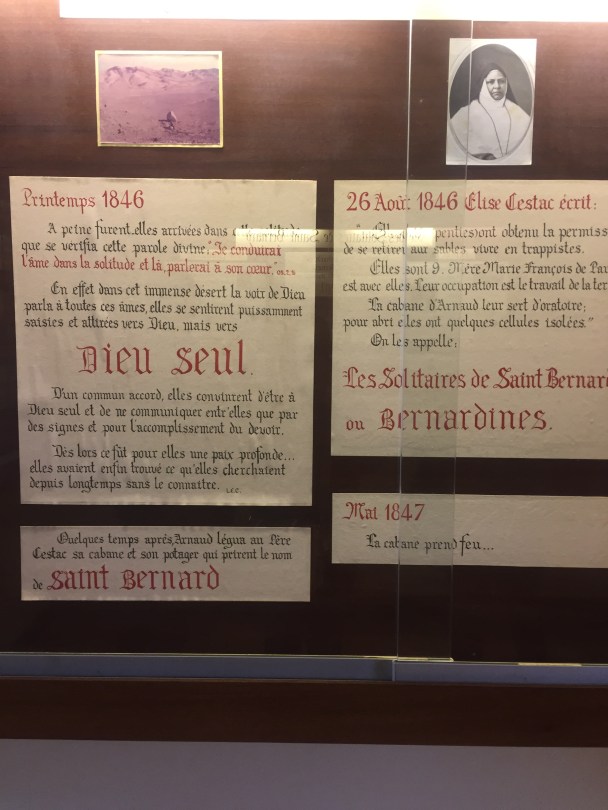 Printemps 1846
A peine furent-elles arrivées dans
que se vérifia cette parole divine: "Je conduirai
l'âme dans la solitude et là, parlerai à son cœur."
En effet dans cet immense désert la voix de Dieu
parla à toutes ces âmes, elles se sentirent puissamment
saisies et attirées vers Dieu, mais vers
Dieu seul.
D'un commun accord, elles convinrent d'être à
Dieu seul et de ne communiquer entr'elles que par
des signes et pour l'accomplissement du devoir.
Dès lors ce fût pour elles une paix profonde...
elles avaient enfin trouvé ce qu'elles cherchaient
depuis longtemps sans le connaître.
Quelques temps après, Arnaud légua au Père
Cestac sa cabane et son potager qui prirent le nom
de Saint Bernard
26 Août 1846 Elise Cestac écrit:
obtenu la permiss
de se retirer aux sables vivre en trappistes.
Elles sont 9. Mère Marie François de Pau
est avec elles. Leur occupation est le travail de la ter
La cabane d'Arnaud leur sert d'oratoire;
pour abri elles ont quelques cellules isolées."
On les appelle:
Les Solitaires de Saint Bernard
ou Bernardines.
Mai 1847
La cabane prend feu...